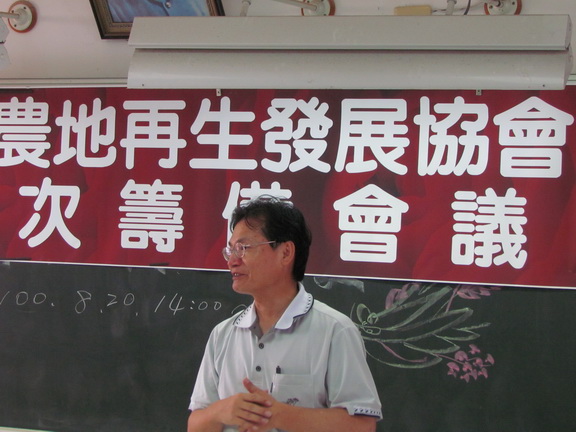 農地再生發展協會
次籌備會議
100. 8.20. 14:00